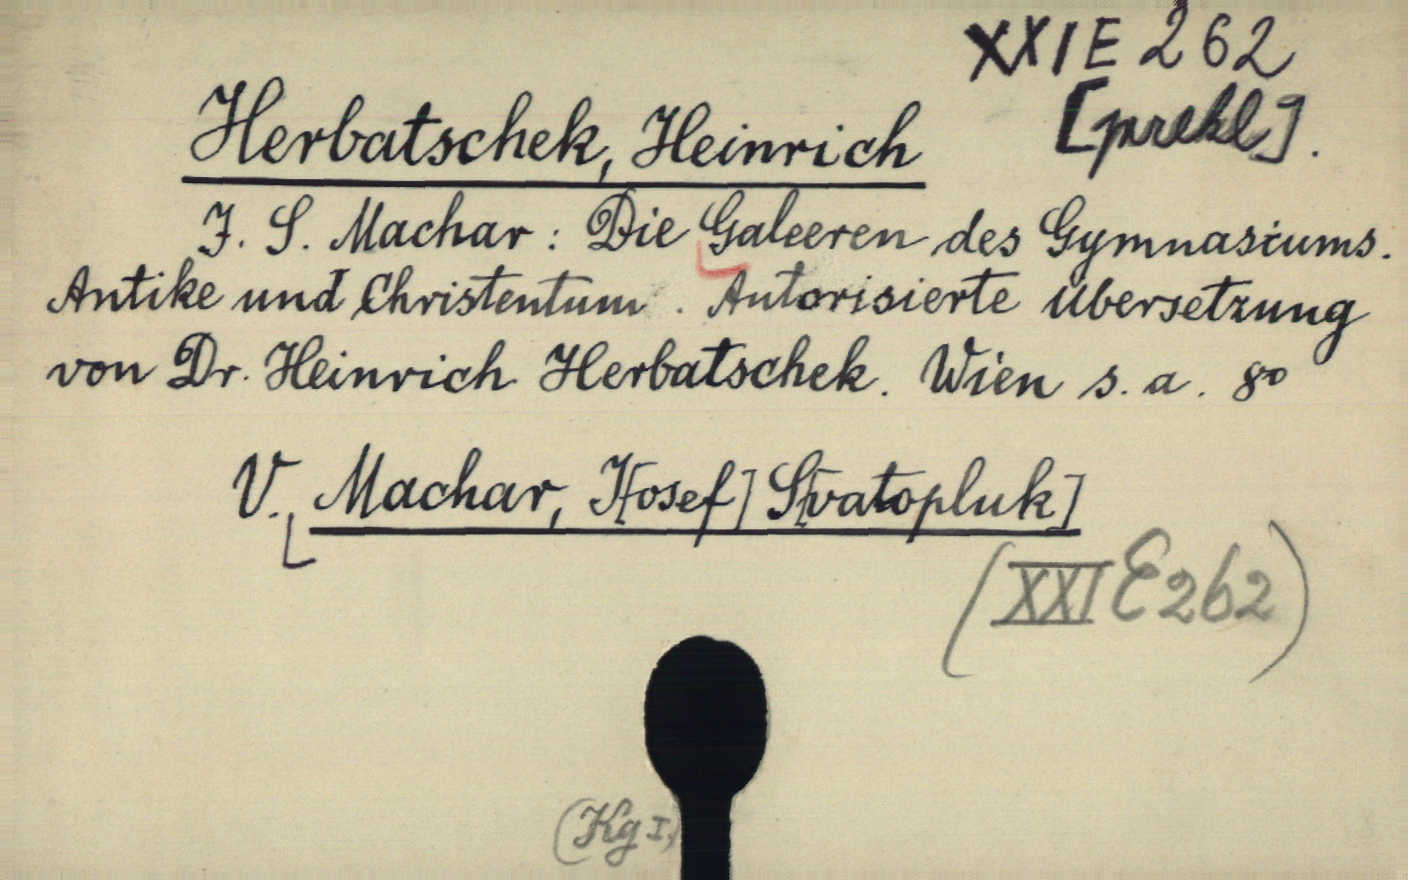 XXI E 262
[překl].
Herbatschek, Heinrich
J. S. Machar: Die Galeeren des Gymnasiums.
Antike und Christentum. Autorisierte Übersetzung
von Dr. Heinrich Herbatschek. Wien s. a. 8°
V. Machar, J[osef] S[vatopluk]
(XXI E 262)
(Kg I,